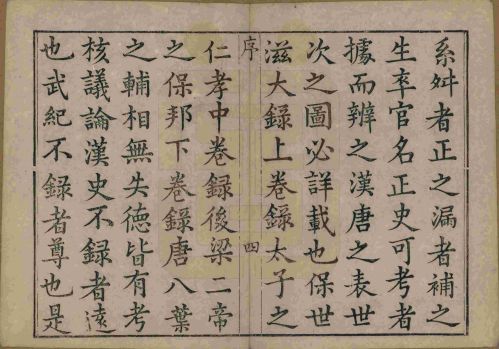 系舛者正之漏者補之
生卒官名正史可考者
據而辨之漢唐之表世
次之圖必詳載也保世
滋大錄上卷錄太子之
序 四
仁孝中卷錄後梁二帝
之保邦下卷錄唐八葉
之輔相無失德皆有考
核議論漢史不錄者遠
也武紀不錄者尊也是